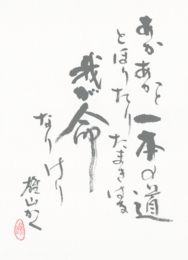 あかあかと一本の道
とほりたりたまきはる
我が命
なりけり